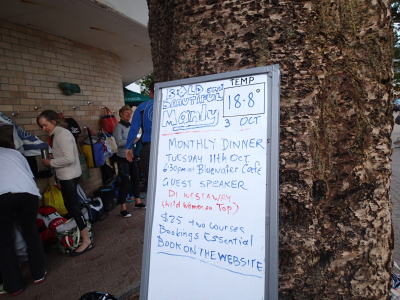 BOLD and
Beautiful
Manly
TEMP
18.8°
3 OCT
MONTHLY DINNER
TUESDAY 11th OCT
6:30pm at Bluewater Cafe
GUEST SPEAKER
DI WESTAWAY
(Wild Women on Top)
$25 two courses
Bookings Essential
BOOK ON THE WEBSITE